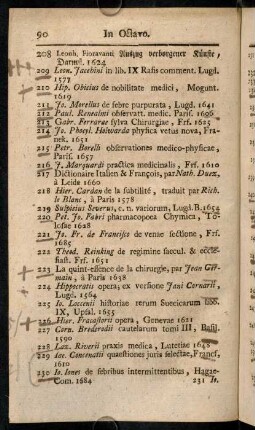 90 In Octavo.
208 Leonh. Fioravanti Auszug verborgener Künste,
Darmst. 1624
209 Leon. Jacchini in lib. IX Rasis comment. Lugd.
1577
210 Hip. Obicius de nobilitate medici, Mogunt.
1619
211 Jo. Morellus de febre purpurata, Lugd. 1641
212 Paul. Renealmi observatt. medic. Paris. 1606
213 Gabr. Ferrarae sylva Chirurgiae, Frf. 1625
214 Jo. Phocyl. Holwarda physica vetus nova, Fra-
nek. 1651
215 Petr. Borelli observationes medico-physicae,
Paris. 1657
216 J. Marquardi practica medicinalis, Frf. 1610
217 Dictionaire Italien & François, par Nath. Duez,
à Leide 1660
218 Hier. Cardan de la subtilité, traduit par Rich.
le Blanc, à Paris 1578
219 Sulpitius Severus, c. n. variorum, Lugd. B. 1654
220 Pet. Jo. Fabri pharmacopoea Chymica, To-
losae 1628
221 Jo. Fr. de Franciscis de venae sectione, Frf.
1685
222 Theod. Reinking de regimine saecul. & eccle-
siast. Frf. 1651
223 La quint-essence de la chirurgie, par Jean Ger-
main, à Paris 1638
224 Hippocratis opera, ex versione Jani Cornarii,
Lugd. 1564
225 Jo. Loccenii historiae rerum Suecicarum libb.
IX, Upsal. 1655
226 Hier. Fracastorii opera, Genevae 1621
227 Corn. Brederodii cautelarum tomi III, Basil.
1590
228 Laz. Riverii praxis medica, Lutetiae 1648
229 Iac. Concenatii quaestiones juris selectae, Francf.
1610
230 Io. Iones de febribus intermittentibus, Hagae-
Com. 1684 231 Io.